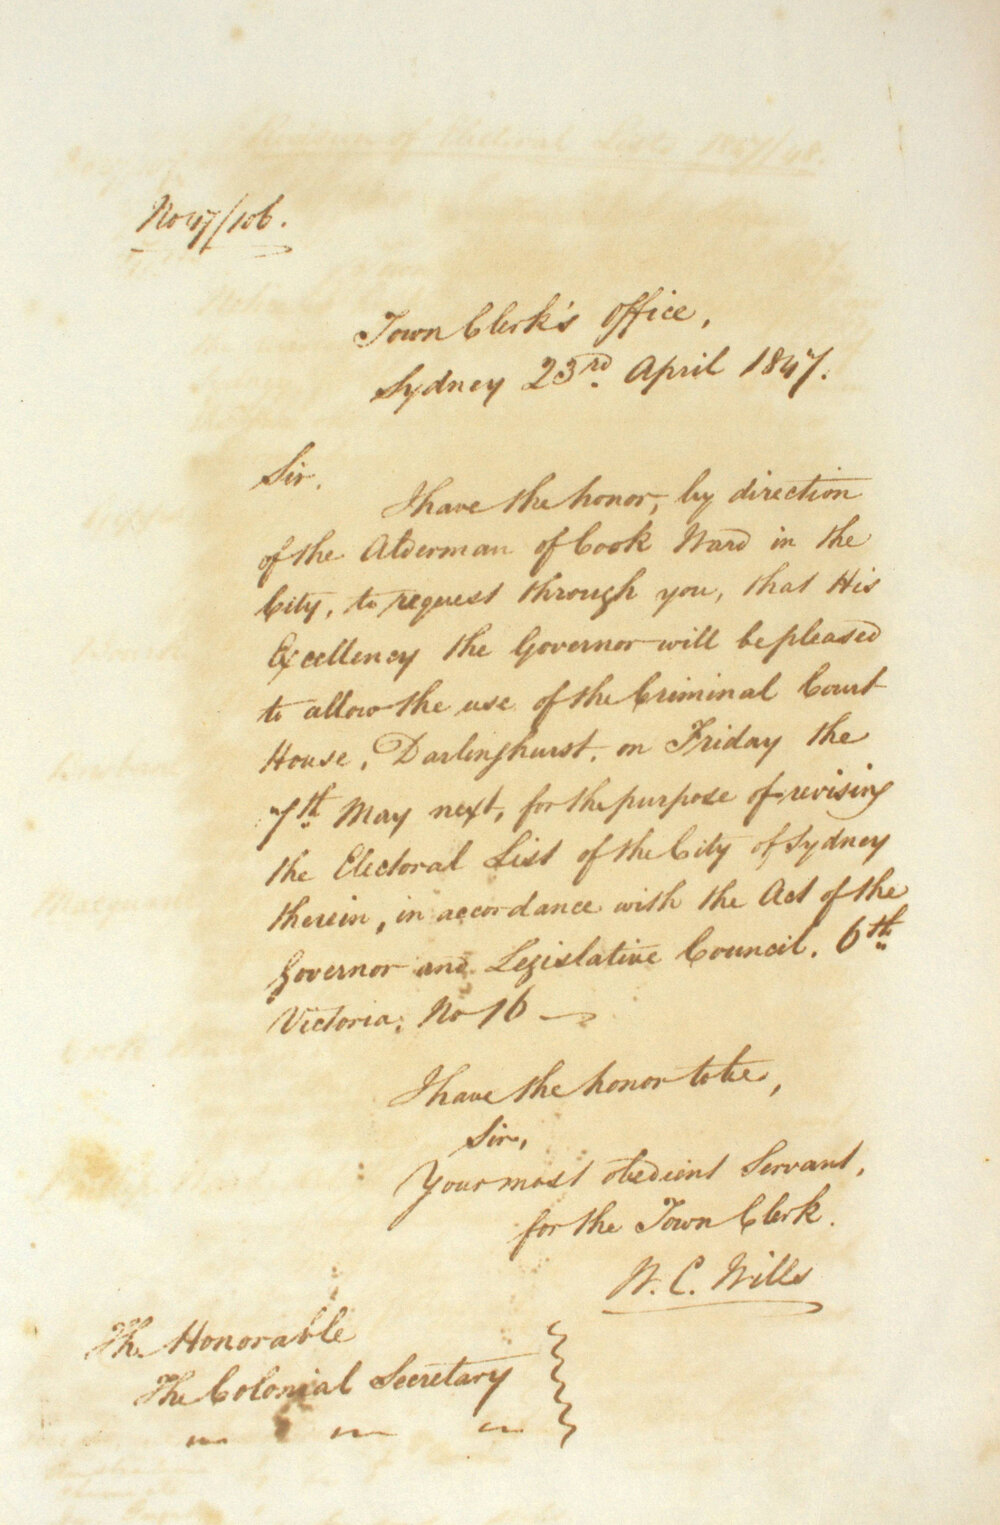 No 47/106.
Town Clerk's Office,
Sydney 23rd April 1847.
Sir,
I have the honor, by direction
of the Alderman of Cook Ward in the
City, to request through you, that His
Excellency the Governor will be pleased
to allow the use of the Criminal Court
House, Darlinghurst, on Friday the
7th May next, for the purpose of revising
the Electoral List of the City of Sydney
therein, in accordance with the Act of the
Governor and Legislative Council, 6th
Victoria, No 16
I have the honor to be,
Sir,
Your most obedient Servant,
for the Town Clerk.
W. C. Wills
The Honorable
The Colonial Secretary